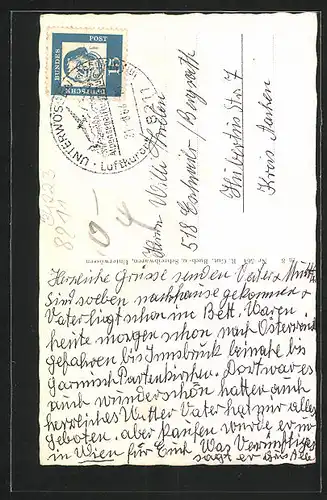 DEUTSCHE BUNDESPOST
15
8211 UNTERWÖSSEN
Luftkurort
Herrn Willi
518 Eschweiler/Bergrath
Hubertusstr. 7
Kreis Aachen
R. Gut, Buch- u. Schreibwaren, Unterwössen
8211
0-
Herzliche Grüsse senden Vater + Mutti
Sind soeben nachhause gekommen +
Vater liegt schon im Bett. Waren
heute morgen schon nach Österreich
gefahren bis Innsbruck beinahe bis
Garmisch Partenkirchen. Dort war es
auch wunderschön hatten auch
herrliches Wetter Vater hat nur alles
geboten. aber kaufen würde er nur
in Wien für Euch Was Vernünftiges
sagt er